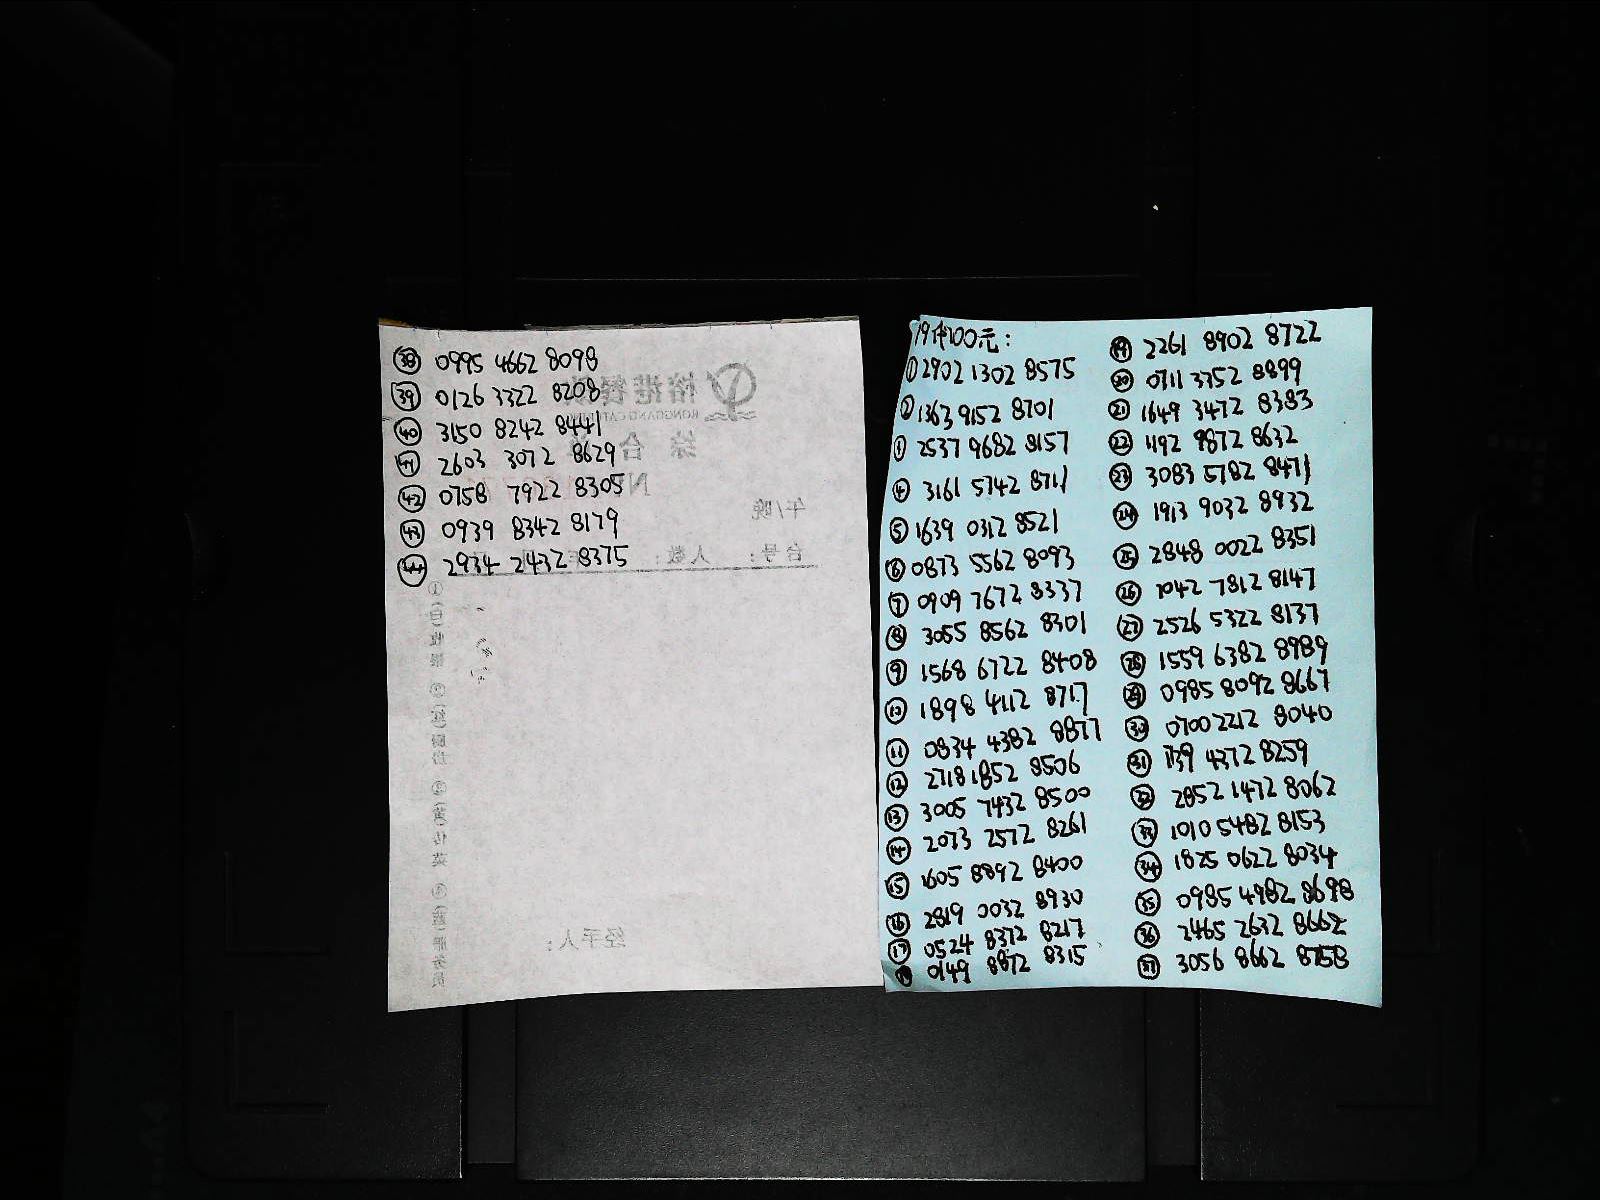 ㊳ 0995 4662 8098
㊴ 0126 3322 8208
㊵ 3150 8242 8441
㊶ 2603 3072 8629
㊷ 0758 7922 8305
㊸ 0939 8342 8179
㊹ 2934 2432 8375
榕港餐
综合
午/晚
台号： 人数：
① (白) 收银 ② (红) 厨房 ③ (黄) 传菜 ④ (蓝) 服务员
经手人：
100元：
① 2902 1302 8575
② 1363 9152 8701
③ 2537 9682 8157
④ 3161 5742 8711
⑤ 1639 0312 8521
⑥ 0873 5562 8093
⑦ 0909 7672 8337
⑧ 3055 8562 8301
⑨ 1568 6722 8408
⑩ 1898 4112 8717
⑪ 0834 4382 8877
⑫ 2718 1852 8506
⑬ 3005 7432 8500
⑭ 2073 2572 8261
⑮ 1605 8892 8400
⑯ 2819 0032 8930
⑰ 0524 8372 8217
0149 8872 8315
⑲ 2261 8902 8722
⑳ 0711 3352 8899
㉑ 1649 3472 8383
㉒ 1192 9872 8632
㉓ 3083 5782 8471
㉔ 1913 9032 8932
㉕ 2848 0022 8351
㉖ 1042 7812 8147
㉗ 2526 5322 8137
㉘ 1559 6382 8989
㉙ 0985 8092 8667
㉚ 0700 2212 8040
㉛ 1139 4372 8259
㉜ 2852 1472 8062
㉝ 1010 5482 8153
㉞ 1825 0622 8034
㉟ 0985 4982 8698
㊱ 2465 2632 8662
㊲ 3056 8662 8758